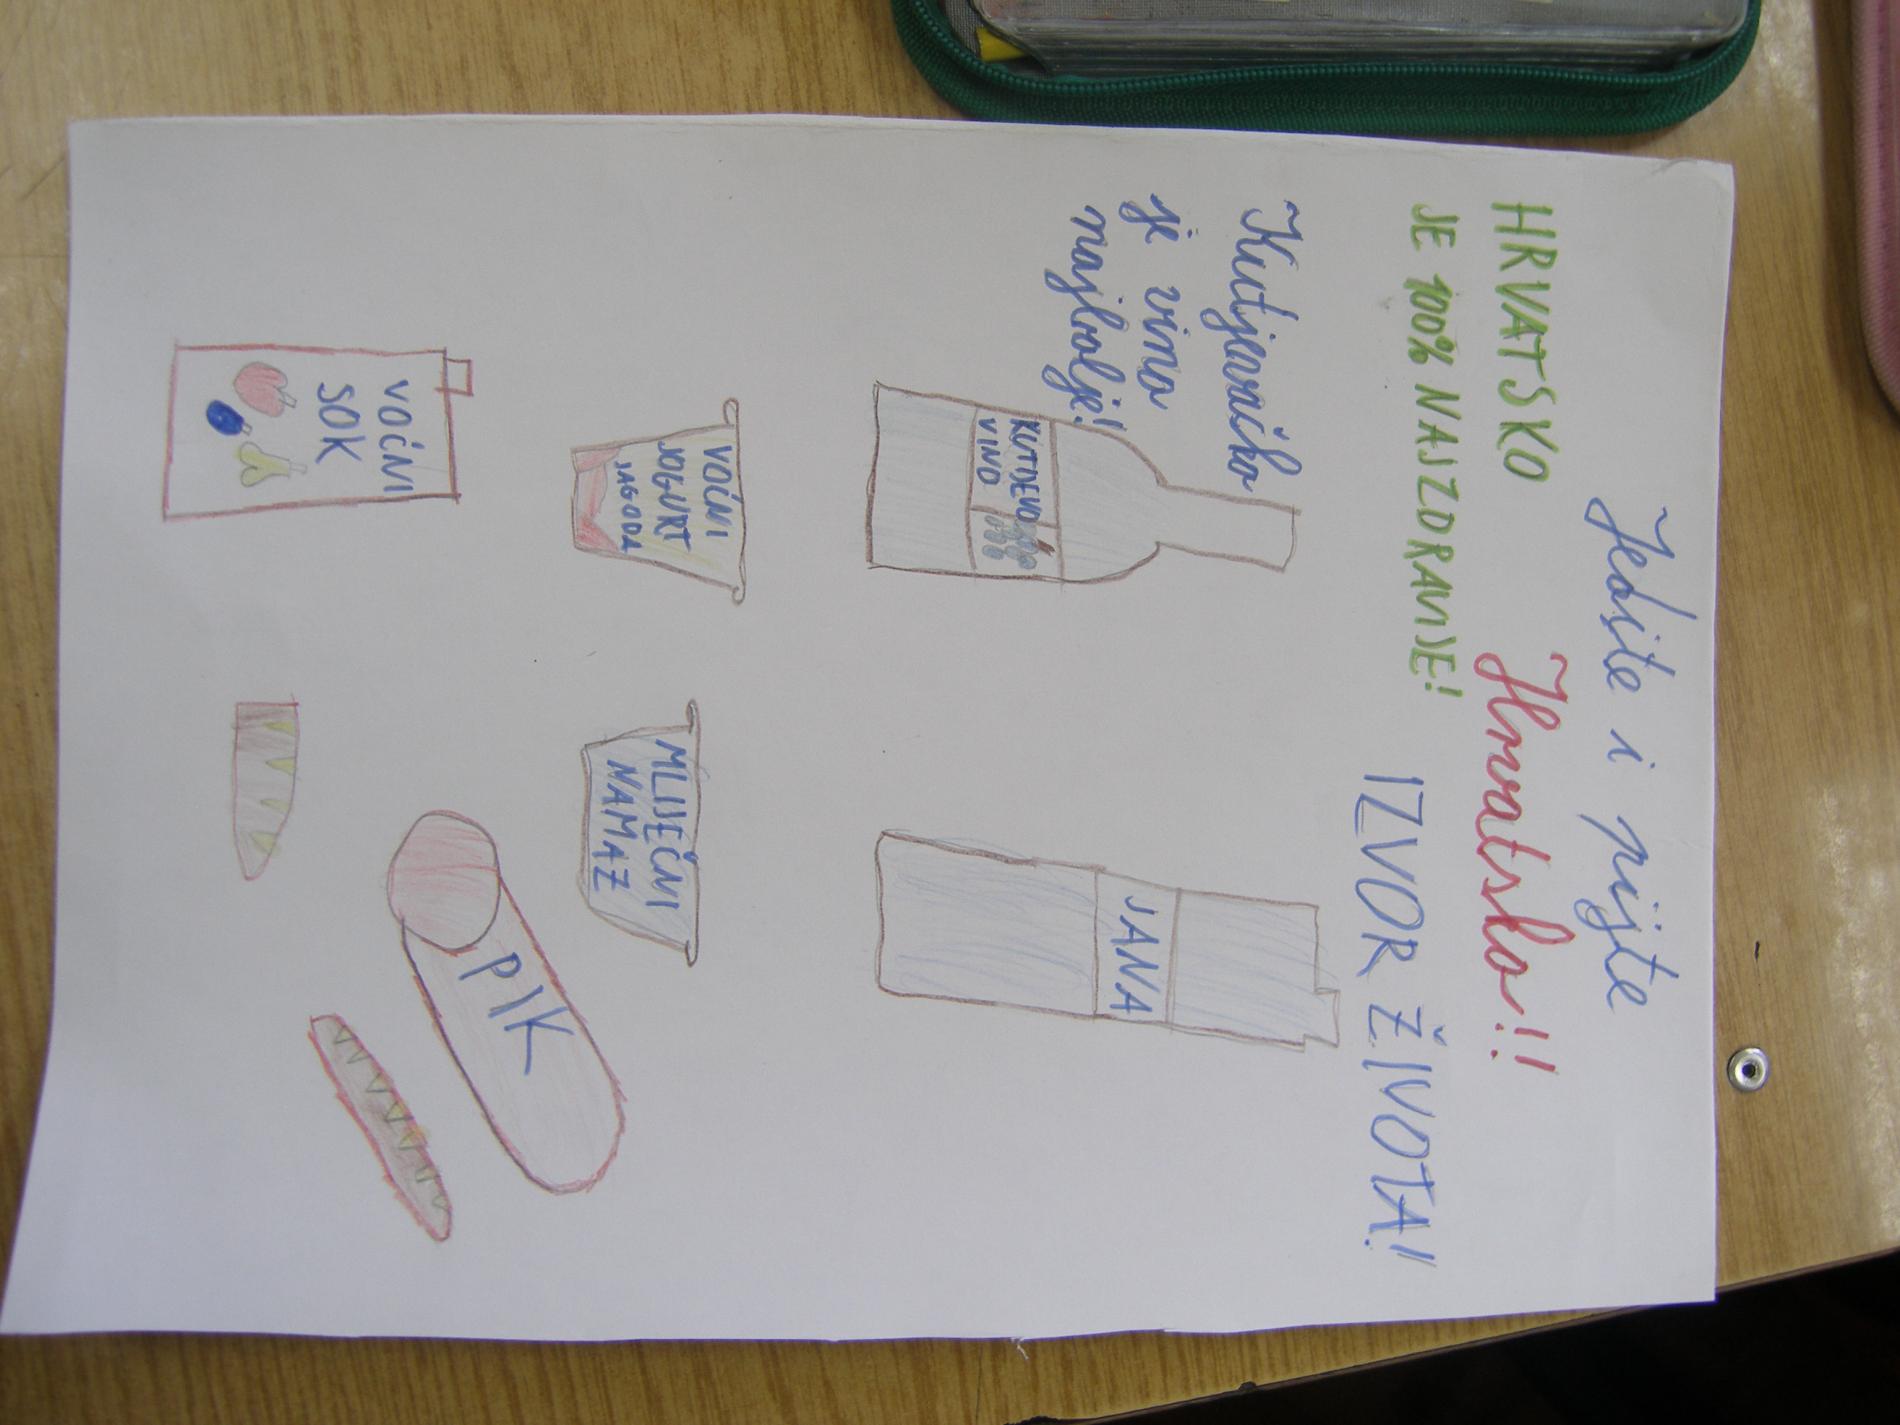 Jedite i pijte
Hrvatsko!!
HRVATSKO
JE 100% NAJZDRAVIJE!
IZVOR ŽIVOTA!
Kutjevačko
je vino
najbolje!
KUTJEVO
VINO
JANA
VOĆNI
JOGURT
JAGODA
MLIJEČNI
NAMAZ
PIK
VOĆNI
SOK